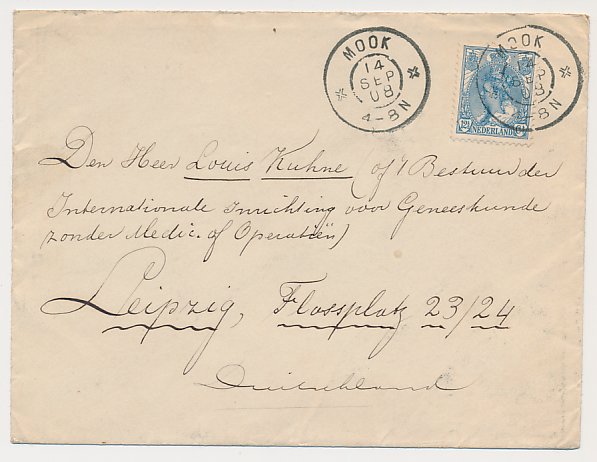 MOOK
14
SEP
08
4-8N
MOOK
14
SEP
08
4-8N
NEDERLAND
Den Heer Louis Kuhne (of 't Bestuur der
Internationale Inrichting voor Geneeskunde
zonder Medic. of Operatiën)
Leipzig, Flossplatz 23/24
Duitschland